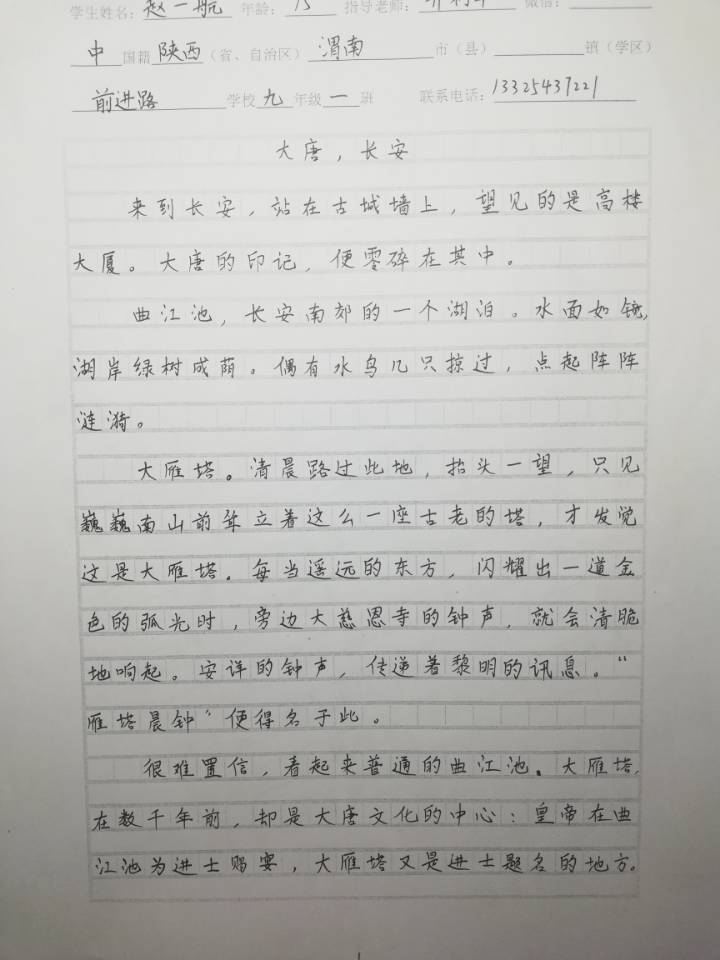 学生姓名：赵一航 年龄：15 指导老师： 微信：
中 国籍 陕西（省、自治区） 渭南 市（县） 镇（学区）
前进路 学校 九 年级 一 班 联系电话：13325437221
大唐，长安
来到长安，站在古城墙上，望见的是高楼
大厦。大唐的印记，便零碎在其中。
曲江池，长安南郊的一个湖泊。水面如镜，
湖岸绿树成荫。偶有水鸟几只掠过，点起阵阵
涟漪。
大雁塔。清晨路过此地，抬头一望，只见
巍巍南山前耸立着这么一座古老的塔，才发觉
这是大雁塔。每当遥远的东方，闪耀出一道金
色的弧光时，旁边大慈恩寺的钟声，就会清脆
地响起。安详的钟声，传递着黎明的讯息。“
雁塔晨钟”便得名于此。
很难置信，看起来普通的曲江池、大雁塔，
在数千年前，却是大唐文化的中心：皇帝在曲
江池为进士赐宴，大雁塔又是进士题名的地方。